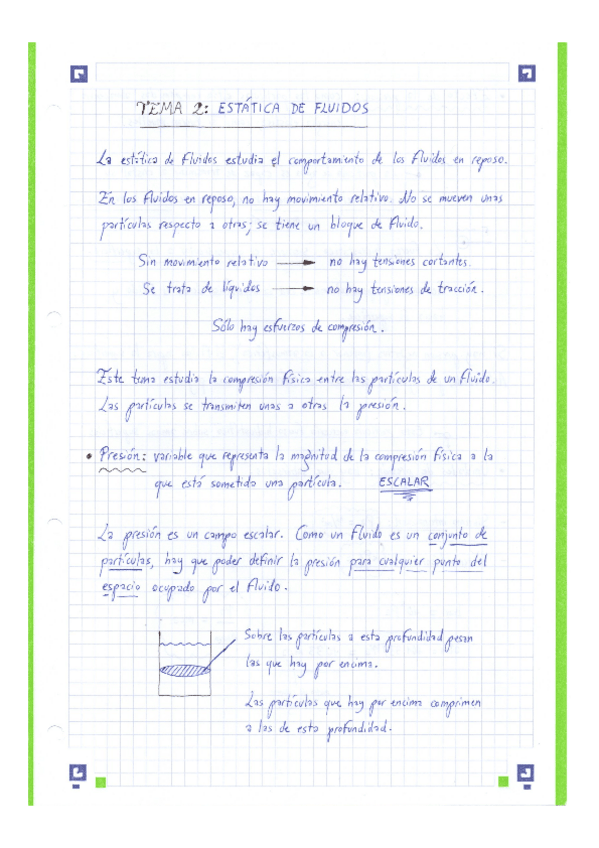 TEMA 2: ESTÁTICA DE FLUIDOS
La estática de fluidos estudia el comportamiento de los fluidos en reposo.
En los fluidos en reposo, no hay movimiento relativo. No se mueven unas
partículas respecto a otras; se tiene un bloque de fluido.
Sin movimiento relativo → no hay tensiones cortantes.
Se trata de líquidos → no hay tensiones de tracción.
Sólo hay esfuerzos de compresión.
Este tema estudia la compresión física entre las partículas de un fluido.
Las partículas se transmiten unas a otras la presión.
• Presión: variable que representa la magnitud de la compresión física a la
que está sometida una partícula. ESCALAR
La presión es un campo escalar. Como un fluido es un conjunto de
partículas, hay que poder definir la presión para cualquier punto del
espacio ocupado por el fluido.
Sobre las partículas a esta profundidad pesan
las que hay por encima.
Las partículas que hay por encima comprimen
a las de esta profundidad.